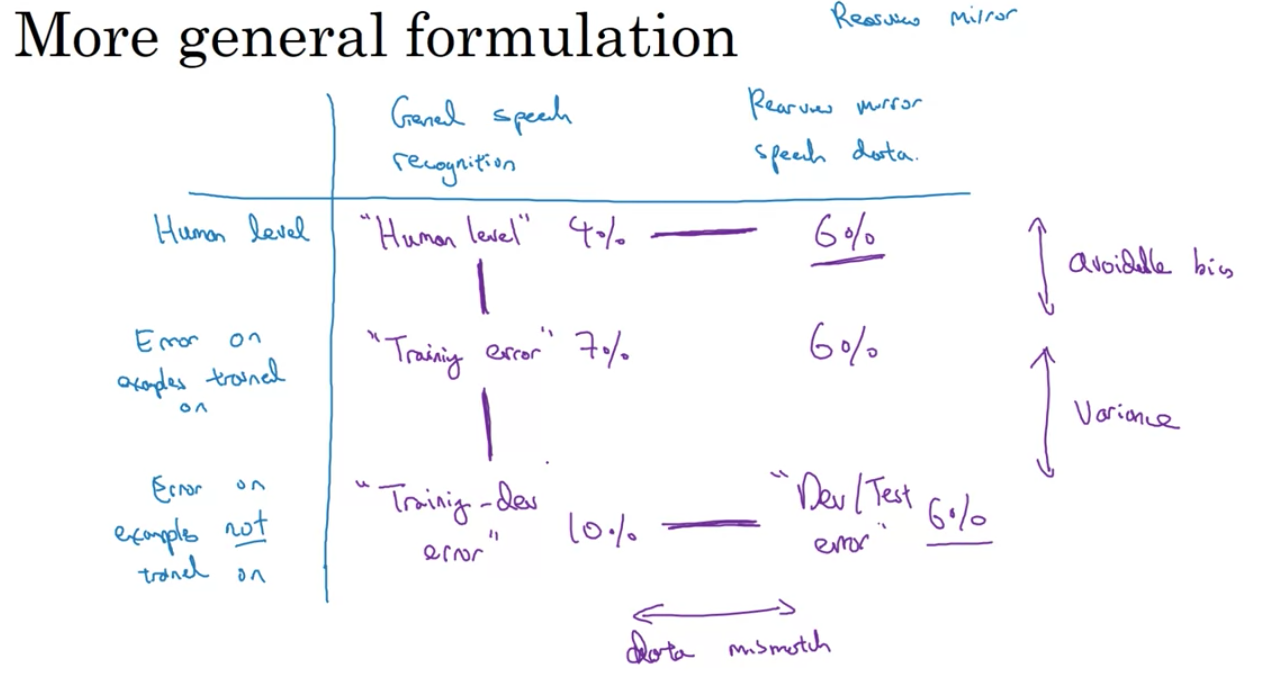 More general formulation
Rearview mirror
General speech
recognition
Rearview mirror
speech data.
Human level
"Human level" 4%
6%
avoidable bias
Error on
examples trained
on
"Training error" 7%
6%
Variance
Error on
examples not
trained on
"Training-dev
error"
10%
"Dev/Test
error"
6%
data mismatch